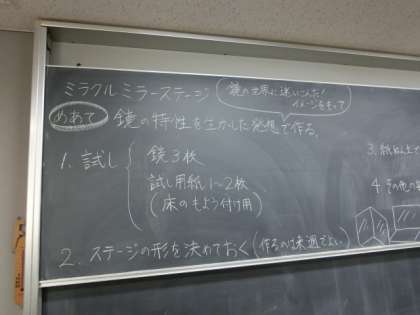 ミラクルミラーステージ
鏡の世界に迷いこんだ!
イメージをもって
めあて 鏡の特性を生かした発想で作る。
1. 試し
鏡3枚
試し用紙1~2枚
(床のもよう付け用)
2. ステージの形を決めておく(作るのは来週でよい)
3. 紙ねん土で
4. その他の